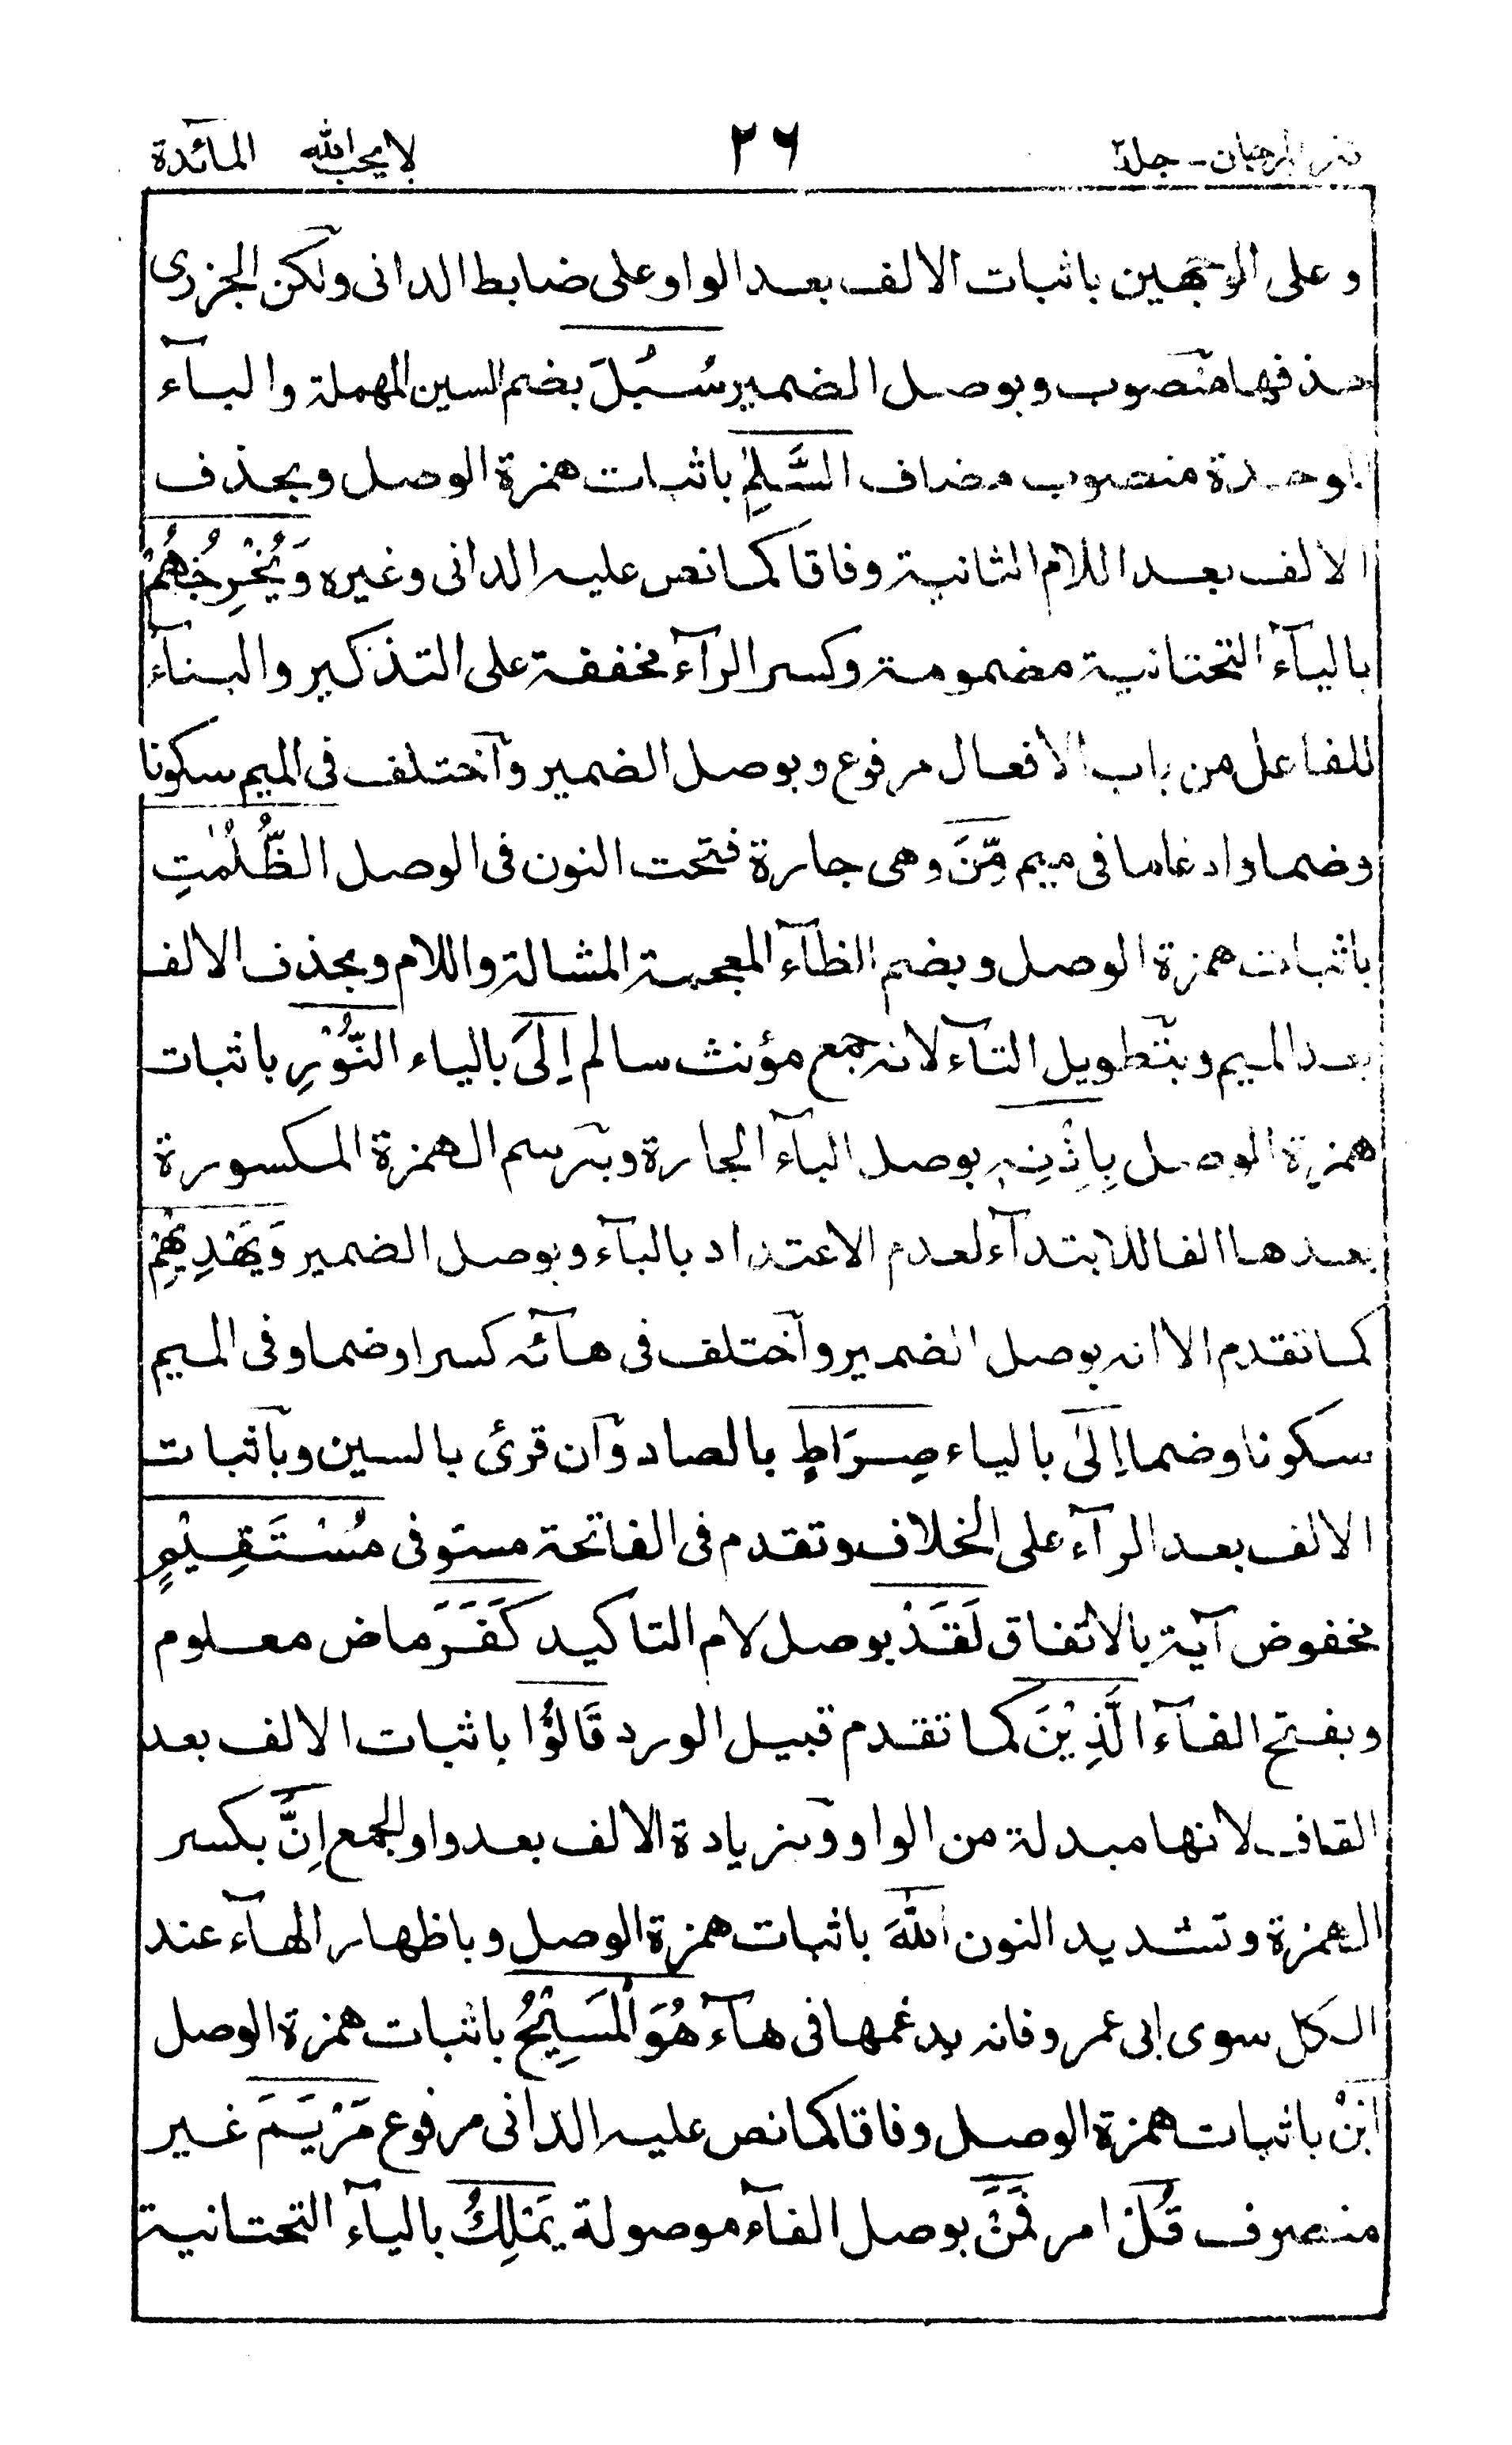 نثر المرجان - جلد ٢ ٢٦ لا يحب الله المائدة
وعلى الوجهين باثبات الالف بعد الواو على ضابط الدانى ولكن الجزرى
حذفها منصوب وبوصل الضمير سُبُلَ بضم السين المهملة والبآء
الموحدة منصوب مضاف السَّلٰمِ باثبات همزة الوصل وبحذف
الالف بعد اللام الثانية وفاقا كما نص عليه الدانى وغيره وَيُخْرِجُهُمْ
باليآء التحتانية مضمومة وكسر الرآء مخففة على التذكير والبنآء
للفاعل من باب الافعال مرفوع وبوصل الضمير واختلف فى الميم سكونا
وضما وادغاما فى ميم مِّنَ وهى جارة فتحت النون فى الوصل الظُّلُمٰتِ
باثبات همزة الوصل وبضم الظآء المعجمة المشالة واللام وبحذف الالف
بعد الميم وبتطويل التآء لانه جمع مؤنث سالم اِلَى بالياء النُّوْرِ باثبات
همزة الوصل بِاِذْنِهٖ بوصل البآء الجارة وبرسم الهمزة المكسورة
بعدها الفا للابتدآء لعدم الاعتداد بالبآء وبوصل الضمير وَيَهْدِيْهِمْ
كما تقدم الا انه بوصل الضمير واختلف فى هآئه كسرا وضما وفى الميم
سكونا وضما اِلٰى بالياء صِرَاطٍ بالصاد وان قرئ بالسين وباثبات
الالف بعد الرآء على الخلاف وتقدم فى الفاتحة مستوفى مُسْتَقِيْمٍ
مخفوض آية بالاتفاق لَقَدْ بوصل لام التاكيد كَفَرَ ماض معلوم
وبفتح الفآء الَّذِيْنَ كما تقدم قبيل الورد قَالُوْٓا باثبات الالف بعد
القاف لانها مبدلة من الواو وبزيادة الالف بعد واو الجمع اِنَّ بكسر
الهمزة وتشديد النون اللّٰهَ باثبات همزة الوصل وباظهار الهآء عند
الكل سوى ابى عمرو فانه يدغمها فى هآء هُوَ الْمَسِيْحُ باثبات همزة الوصل
ابْنُ باثبات همزة الوصل وفاقا كما نص عليه الدانى مرفوع مَرْيَمَ غير
منصرف قُلْ امر فَمَنْ بوصل الفآء موصولة يَمْلِكُ باليآء التحتانية